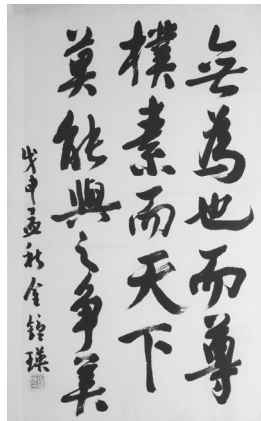 無為也而尊
樸素而天下
莫能與之爭美
戊申孟秋金鐘瑛